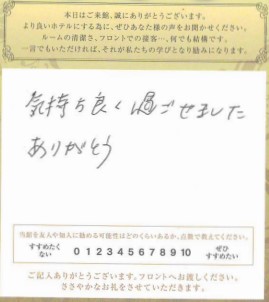 本日はご来館、誠にありがとうございます。
より良いホテルにする為に、ぜひあなた様の声をお聞かせください。
ルームの清潔さ、フロントでの接客…、何でも結構です。
一言でもいただければ、それが私たちの学びとなり励みになります。
気持ち良く過ごせました
ありがとう
当館を友人や知人に勧める可能性はどのくらいあるか、点数で教えてください。
すすめたくない 0 1 2 3 4 5 6 7 8 9 10 ぜひすすめたい
ご記入ありがとうございます。フロントへお渡しください。
ささやかなお礼をさせていただきます。